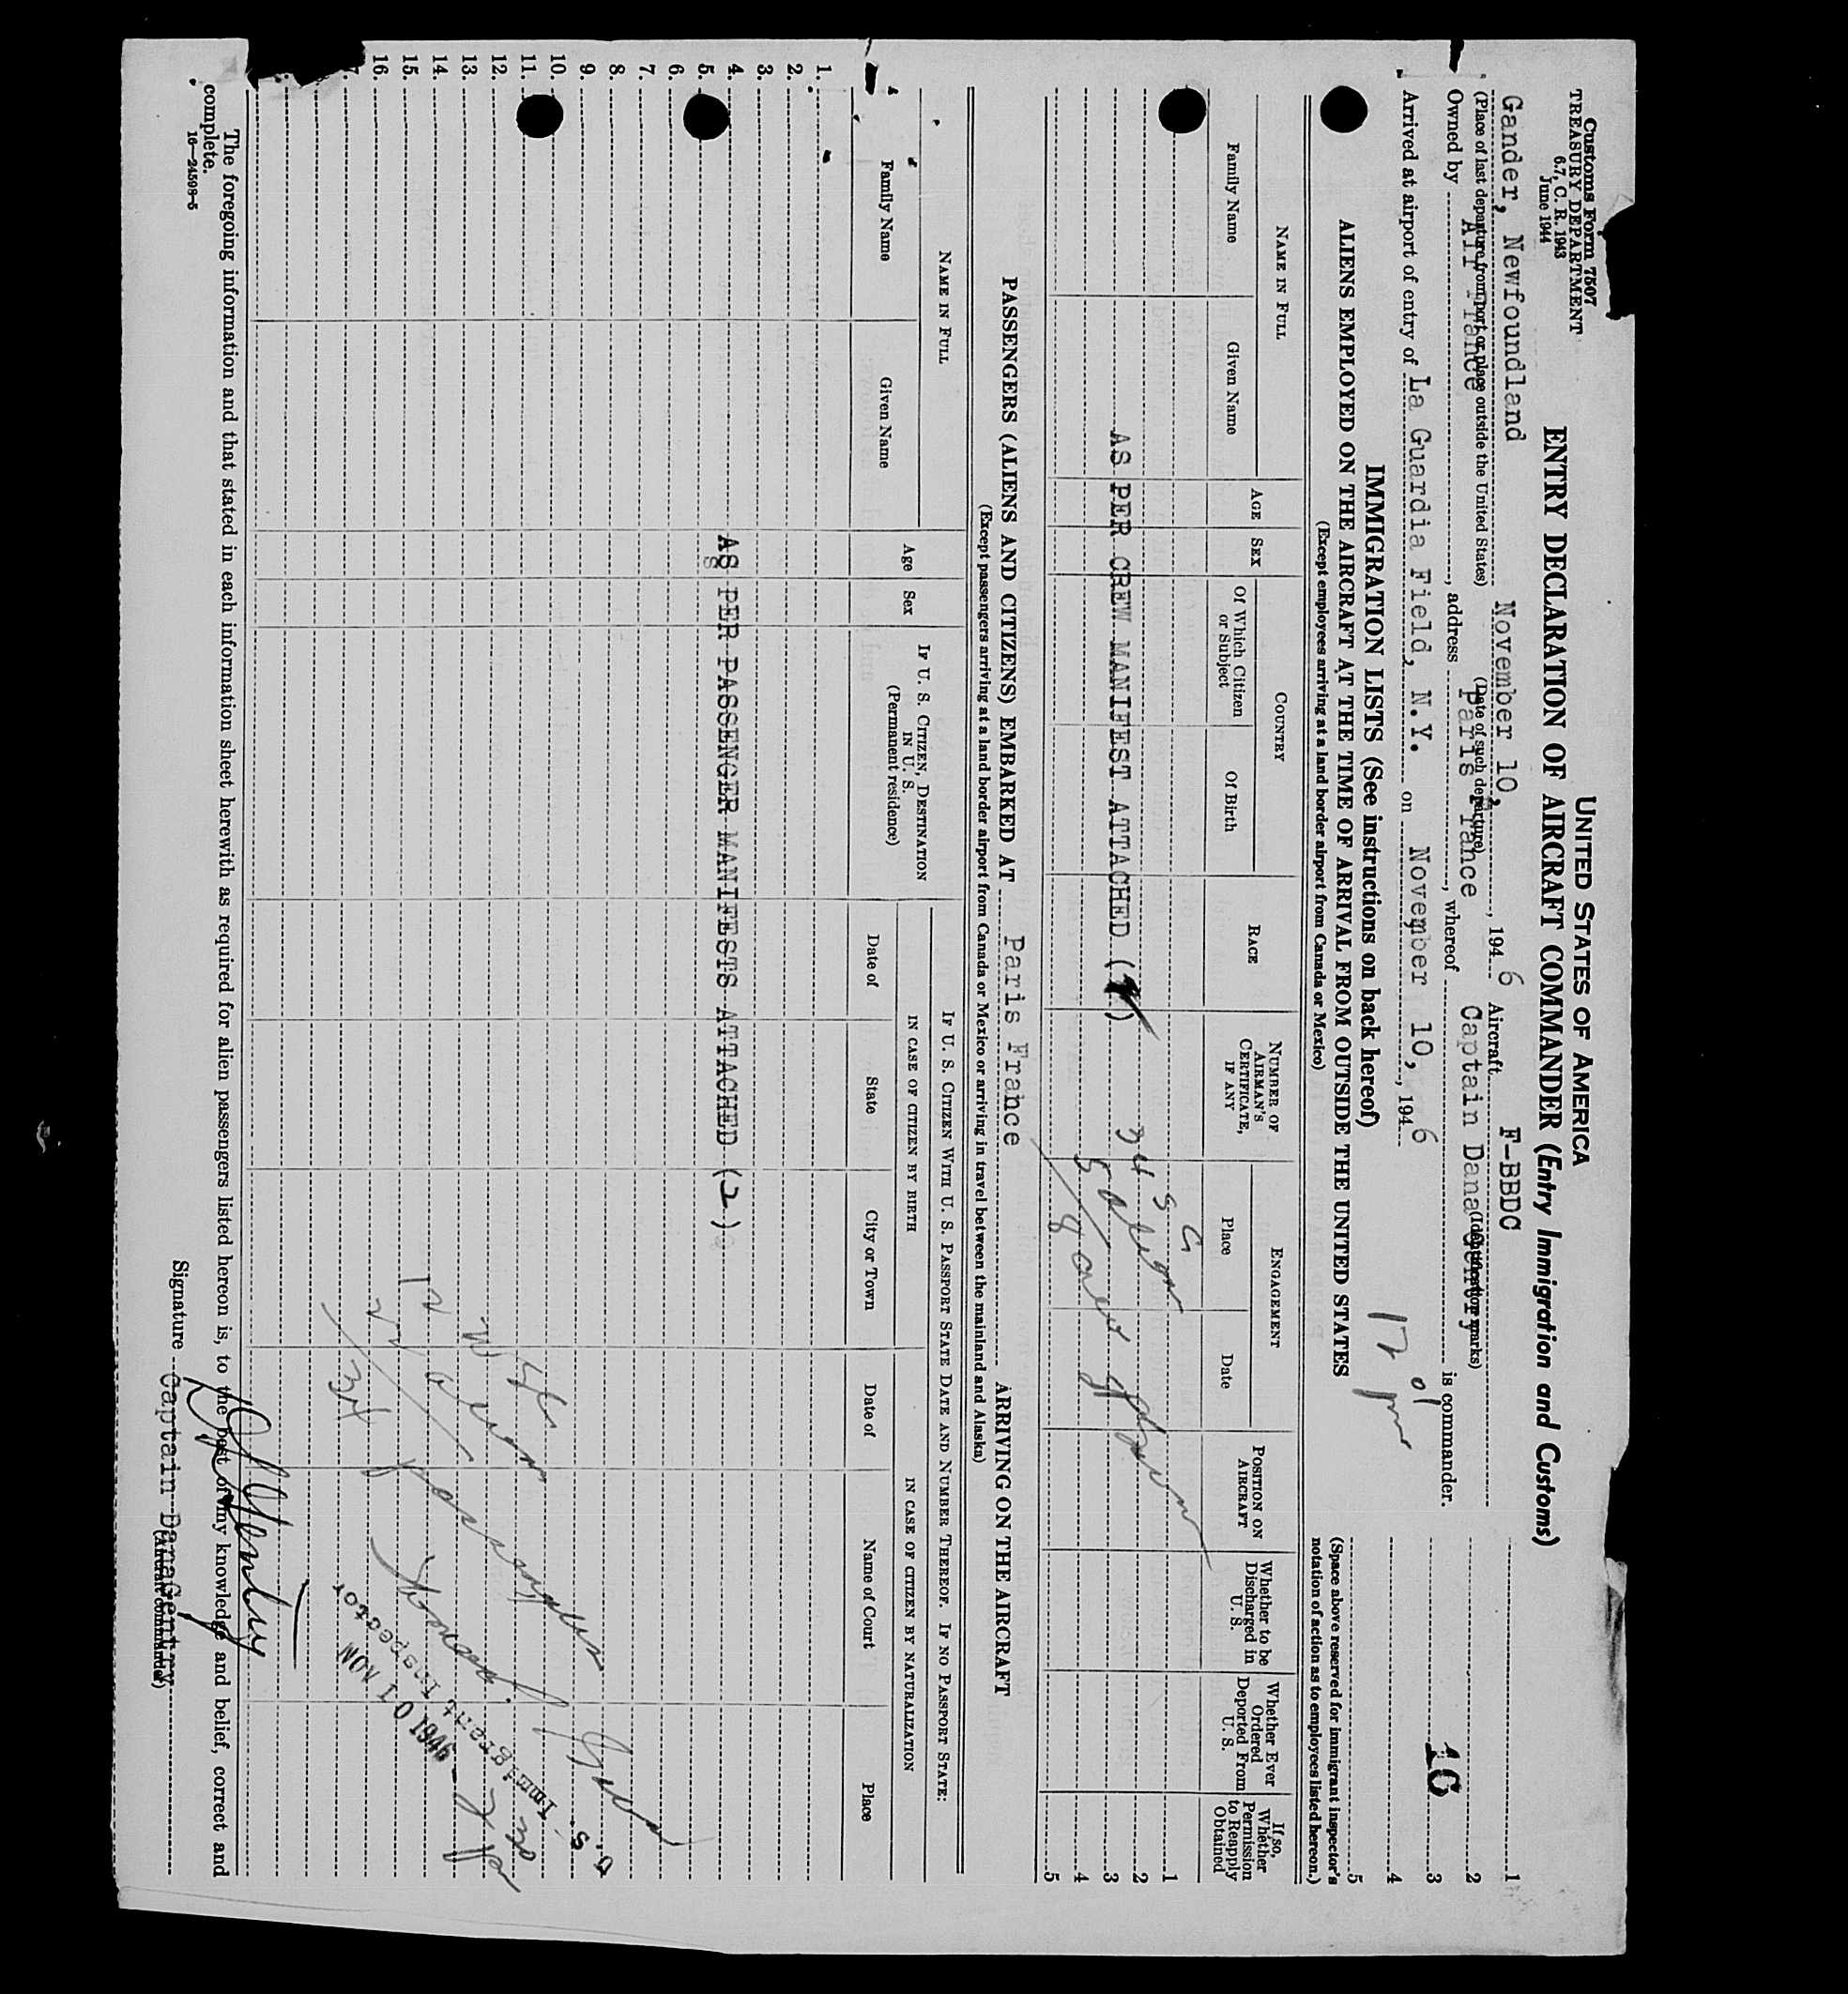 Customs Form 7507
TREASURY DEPARTMENT
6.7, C. R. 1943
June 1944
UNITED STATES OF AMERICA
ENTRY DECLARATION OF AIRCRAFT COMMANDER (Entry Immigration and Customs)
Gander, Newfoundland November 10, , 194 6 Aircraft F-BBDC
(Place of last departure from port or place outside the United States) (Date of such departure) (Identification marks)
Owned by Air France , address Paris France , whereof Captain Dana Gentry is commander.
Arrived at airport of entry of La Guardia Field, N.Y. on November 10, , 194 6
1
2
3
4
5
10
(Space above reserved for immigrant inspector's notation of action as to employees listed hereon.)
IMMIGRATION LISTS (See instructions on back hereof)
ALIENS EMPLOYED ON THE AIRCRAFT AT THE TIME OF ARRIVAL FROM OUTSIDE THE UNITED STATES
(Except employees arriving at a land border airport from Canada or Mexico)
NAME IN FULL
Family Name
Given Name
AGE
SEX
COUNTRY
Of Which Citizen or Subject
Of Birth
RACE
NUMBER OF AIRMAN'S CERTIFICATE, IF ANY
ENGAGEMENT
Place
Date
POSITION ON AIRCRAFT
Whether to be Discharged in U. S.
Whether Ever Ordered Deported From U. S.
If so, Whether Permission to Reapply Obtained
1
2
3
4
5
AS PER CREW MANIFEST ATTACHED
PASSENGERS (ALIENS AND CITIZENS) EMBARKED AT Paris France ARRIVING ON THE AIRCRAFT
(Except passengers arriving at a land border airport from Canada or Mexico or arriving in travel between the mainland and Alaska)
NAME IN FULL
Family Name
Given Name
Age
Sex
IF U. S. CITIZEN, DESTINATION IN U. S.
(Permanent residence)
IF U. S. CITIZEN WITH U. S. PASSPORT STATE DATE AND NUMBER THEREOF. IF NO PASSPORT STATE:
IN CASE OF CITIZEN BY BIRTH
Date of
State
City or Town
IN CASE OF CITIZEN BY NATURALIZATION
Date of
Name of Court
Place
1.
2.
3.
4.
5.
6.
7.
8.
9.
10.
11.
12.
13.
14.
15.
16.
AS PER PASSENGER MANIFESTS ATTACHED (2)
U. S. Immigrant Inspector
NOV 10 1946
The foregoing information and that stated in each information sheet herewith as required for alien passengers listed hereon is, to the best of my knowledge and belief, correct and
complete.
16—24598-5
Signature Captain Dana Gentry
(Aircraft commander)